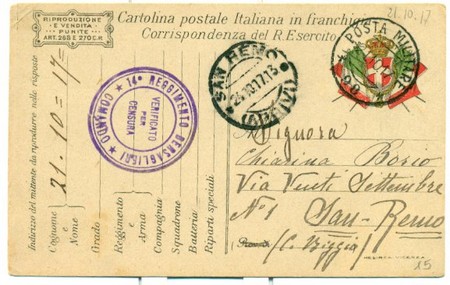 21.10.17
RIPRODUZIONE
E VENDITA
PUNITE
ART. 265 E 270 C.R.
Cartolina postale Italiana in franchigia
Corrispondenza del R. Esercito
SAN REMO
24.10.17.15
POSTA MILITARE
COMANDO 14° REGGIMENTO BERSAGLIERI
VERIFICATO
PER
CENSURA
Indirizzo del mittente da riprodurre nelle risposte
Cognome e Nome
21-10-17
Grado
Reggimento e Arma
Compagnia
Squadrone
Batteria
Riparti speciali
Signora
Chiarina Borio
Via Venti Settembre
N° 1 San-Remo
(C. Biggia)
15